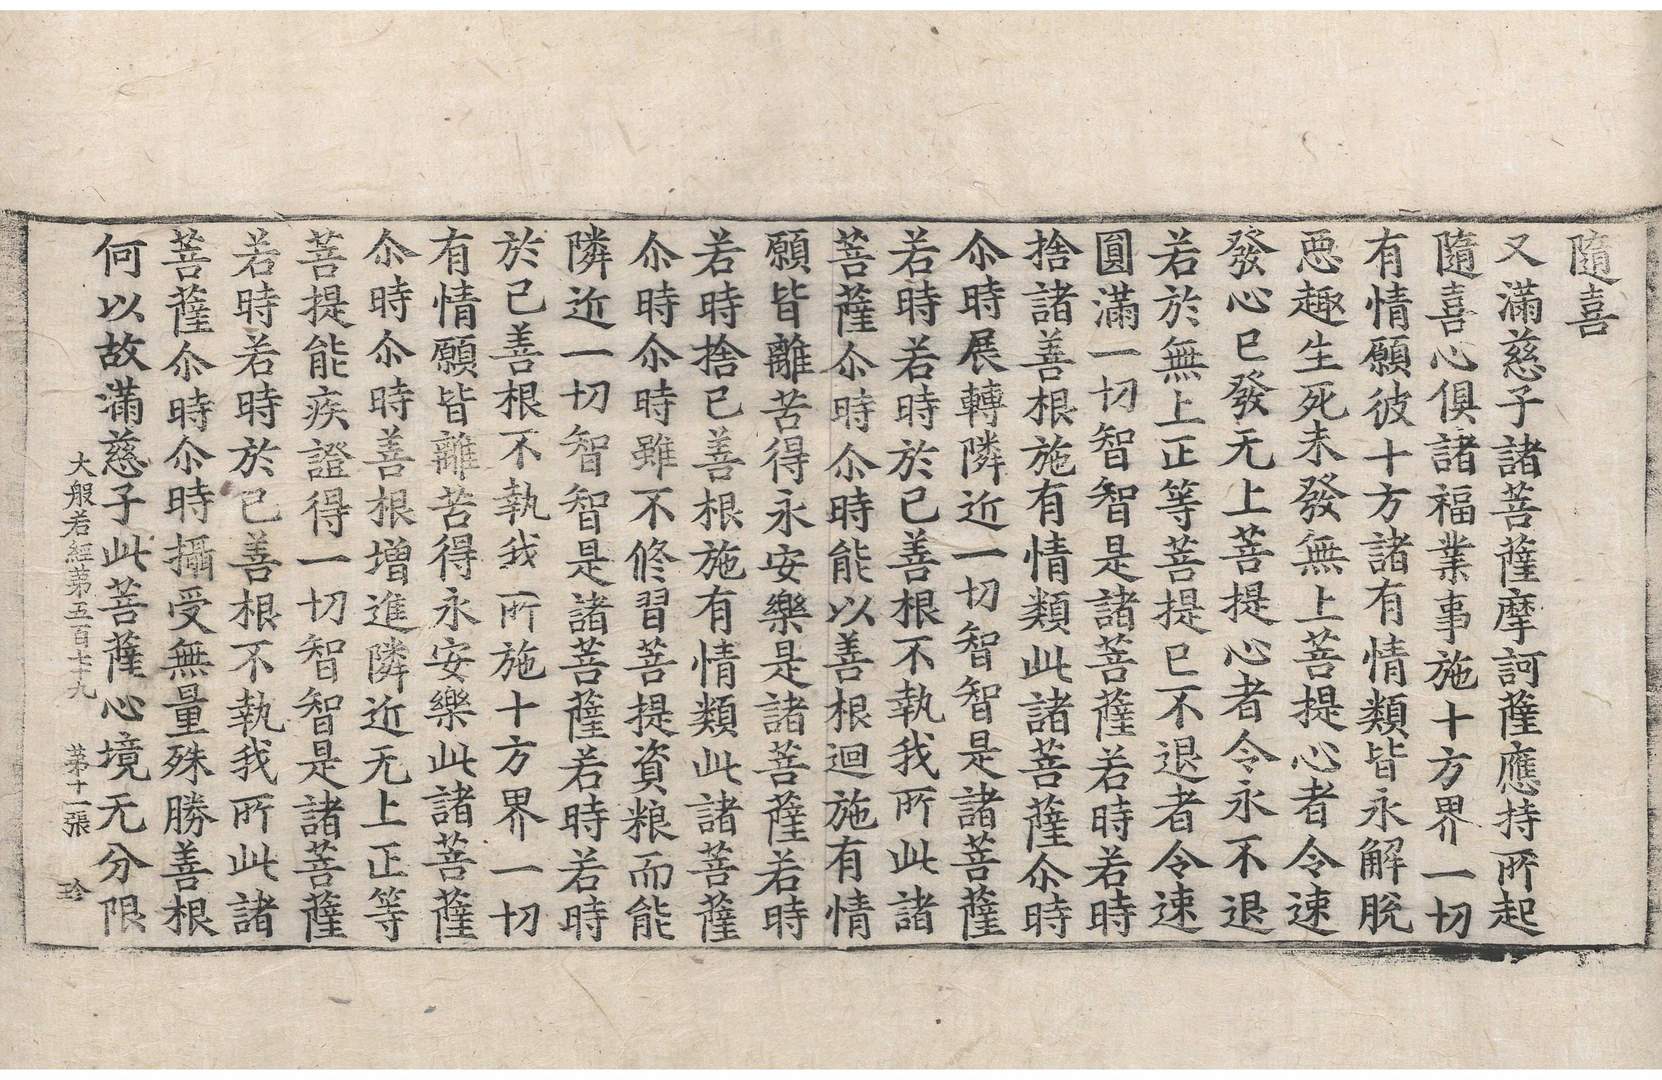 隨喜
又滿慈子諸菩薩摩訶薩應持所起
隨喜心俱諸福業事施十方界一切
有情願彼十方諸有情類皆永解脫
惡趣生死未發無上菩提心者令速
發心已發无上菩提心者令永不退
若於無上正等菩提已不退者令速
圓滿一切智智是諸菩薩若時若時
捨諸善根施有情類此諸菩薩尒時
尒時展轉隣近一切智智是諸菩薩
若時若時於已善根不執我所此諸
菩薩尒時尒時能以善根迴施有情
願皆離苦得永安樂是諸菩薩若時
若時捨已善根施有情類此諸菩薩
尒時尒時雖不修習菩提資粮而能
隣近一切智智是諸菩薩若時若時
於已善根不執我所施十方界一切
有情願皆離苦得永安樂此諸菩薩
尒時尒時善根增進隣近无上正等
菩提能疾證得一切智智是諸菩薩
若時若時於已善根不執我所此諸
菩薩尒時尒時攝受無量殊勝善根
何以故滿慈子此菩薩心境无分限
大般若經第五百七十九 第十一張 珎